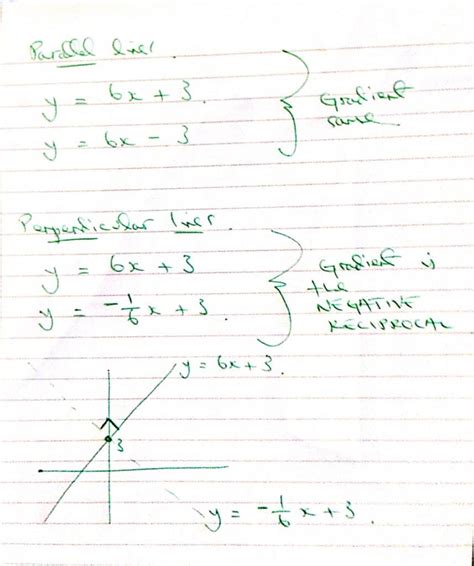 Parallel lines.
y = 6x + 3.
y = 6x - 3
Gradient
same
Perpendicular lines.
y = 6x + 3
y = -1/6 x + 3.
Gradient is
the
NEGATIVE
RECIPROCAL
y = 6x + 3.
3
y = -1/6 x + 3.